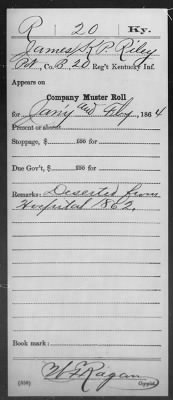 R 20 Ky.
James K. P. Riley
Pvt, Co. B, 20 Reg't Kentucky Inf.
Appears on
Company Muster Roll
for Jan'y and Feby, 1864
Present or absent
Stoppage, $ 100 for
Due Gov't, $ 100 for
Remarks: Deserted from
Hospital 1862.
Book mark:
Ragan
(358) Copyist.